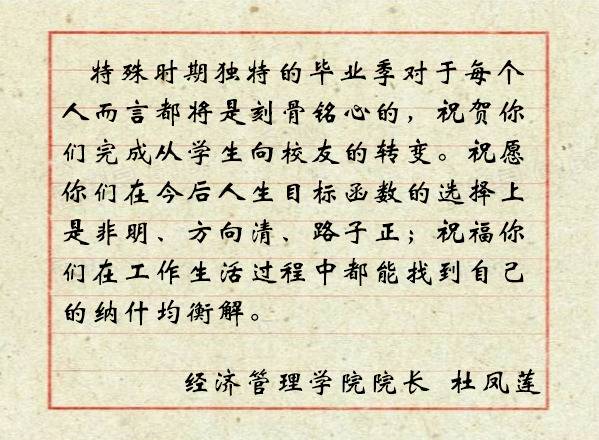 特殊时期独特的毕业季对于每个
人而言都将是刻骨铭心的，祝贺你
们完成从学生向校友的转变。祝愿
你们在今后人生目标函数的选择上
是非明、方向清、路子正；祝福你
们在工作生活过程中都能找到自己
的纳什均衡解。
经济管理学院院长 杜凤莲